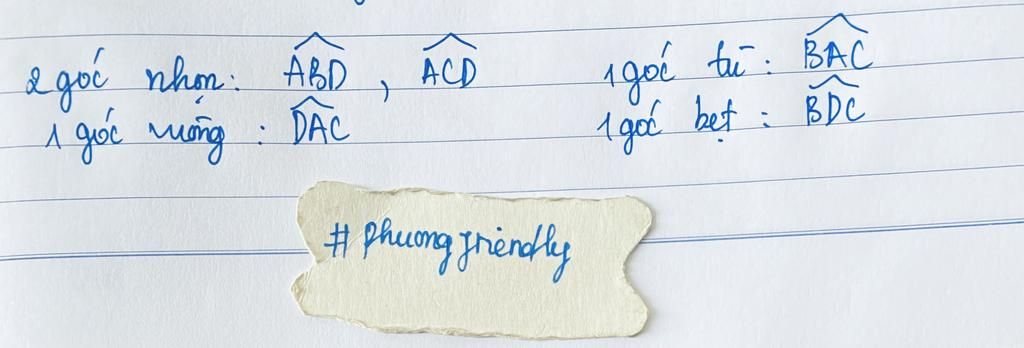 2 góc nhọn: \widehat{ABD}, \widehat{ACD} 1 góc tù: \widehat{BAC}
1 góc vuông: \widehat{DAC} 1 góc bẹt: \widehat{BDC}
# phuong friendly